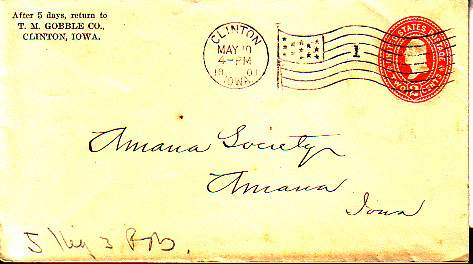 After 5 days, return to
T. M. GOBBLE CO.,
CLINTON, IOWA.
CLINTON
MAY 10
4-PM
1901
IOWA
1
UNITED STATES POSTAGE
2
Amana Society
Amana
Iowa
5
3